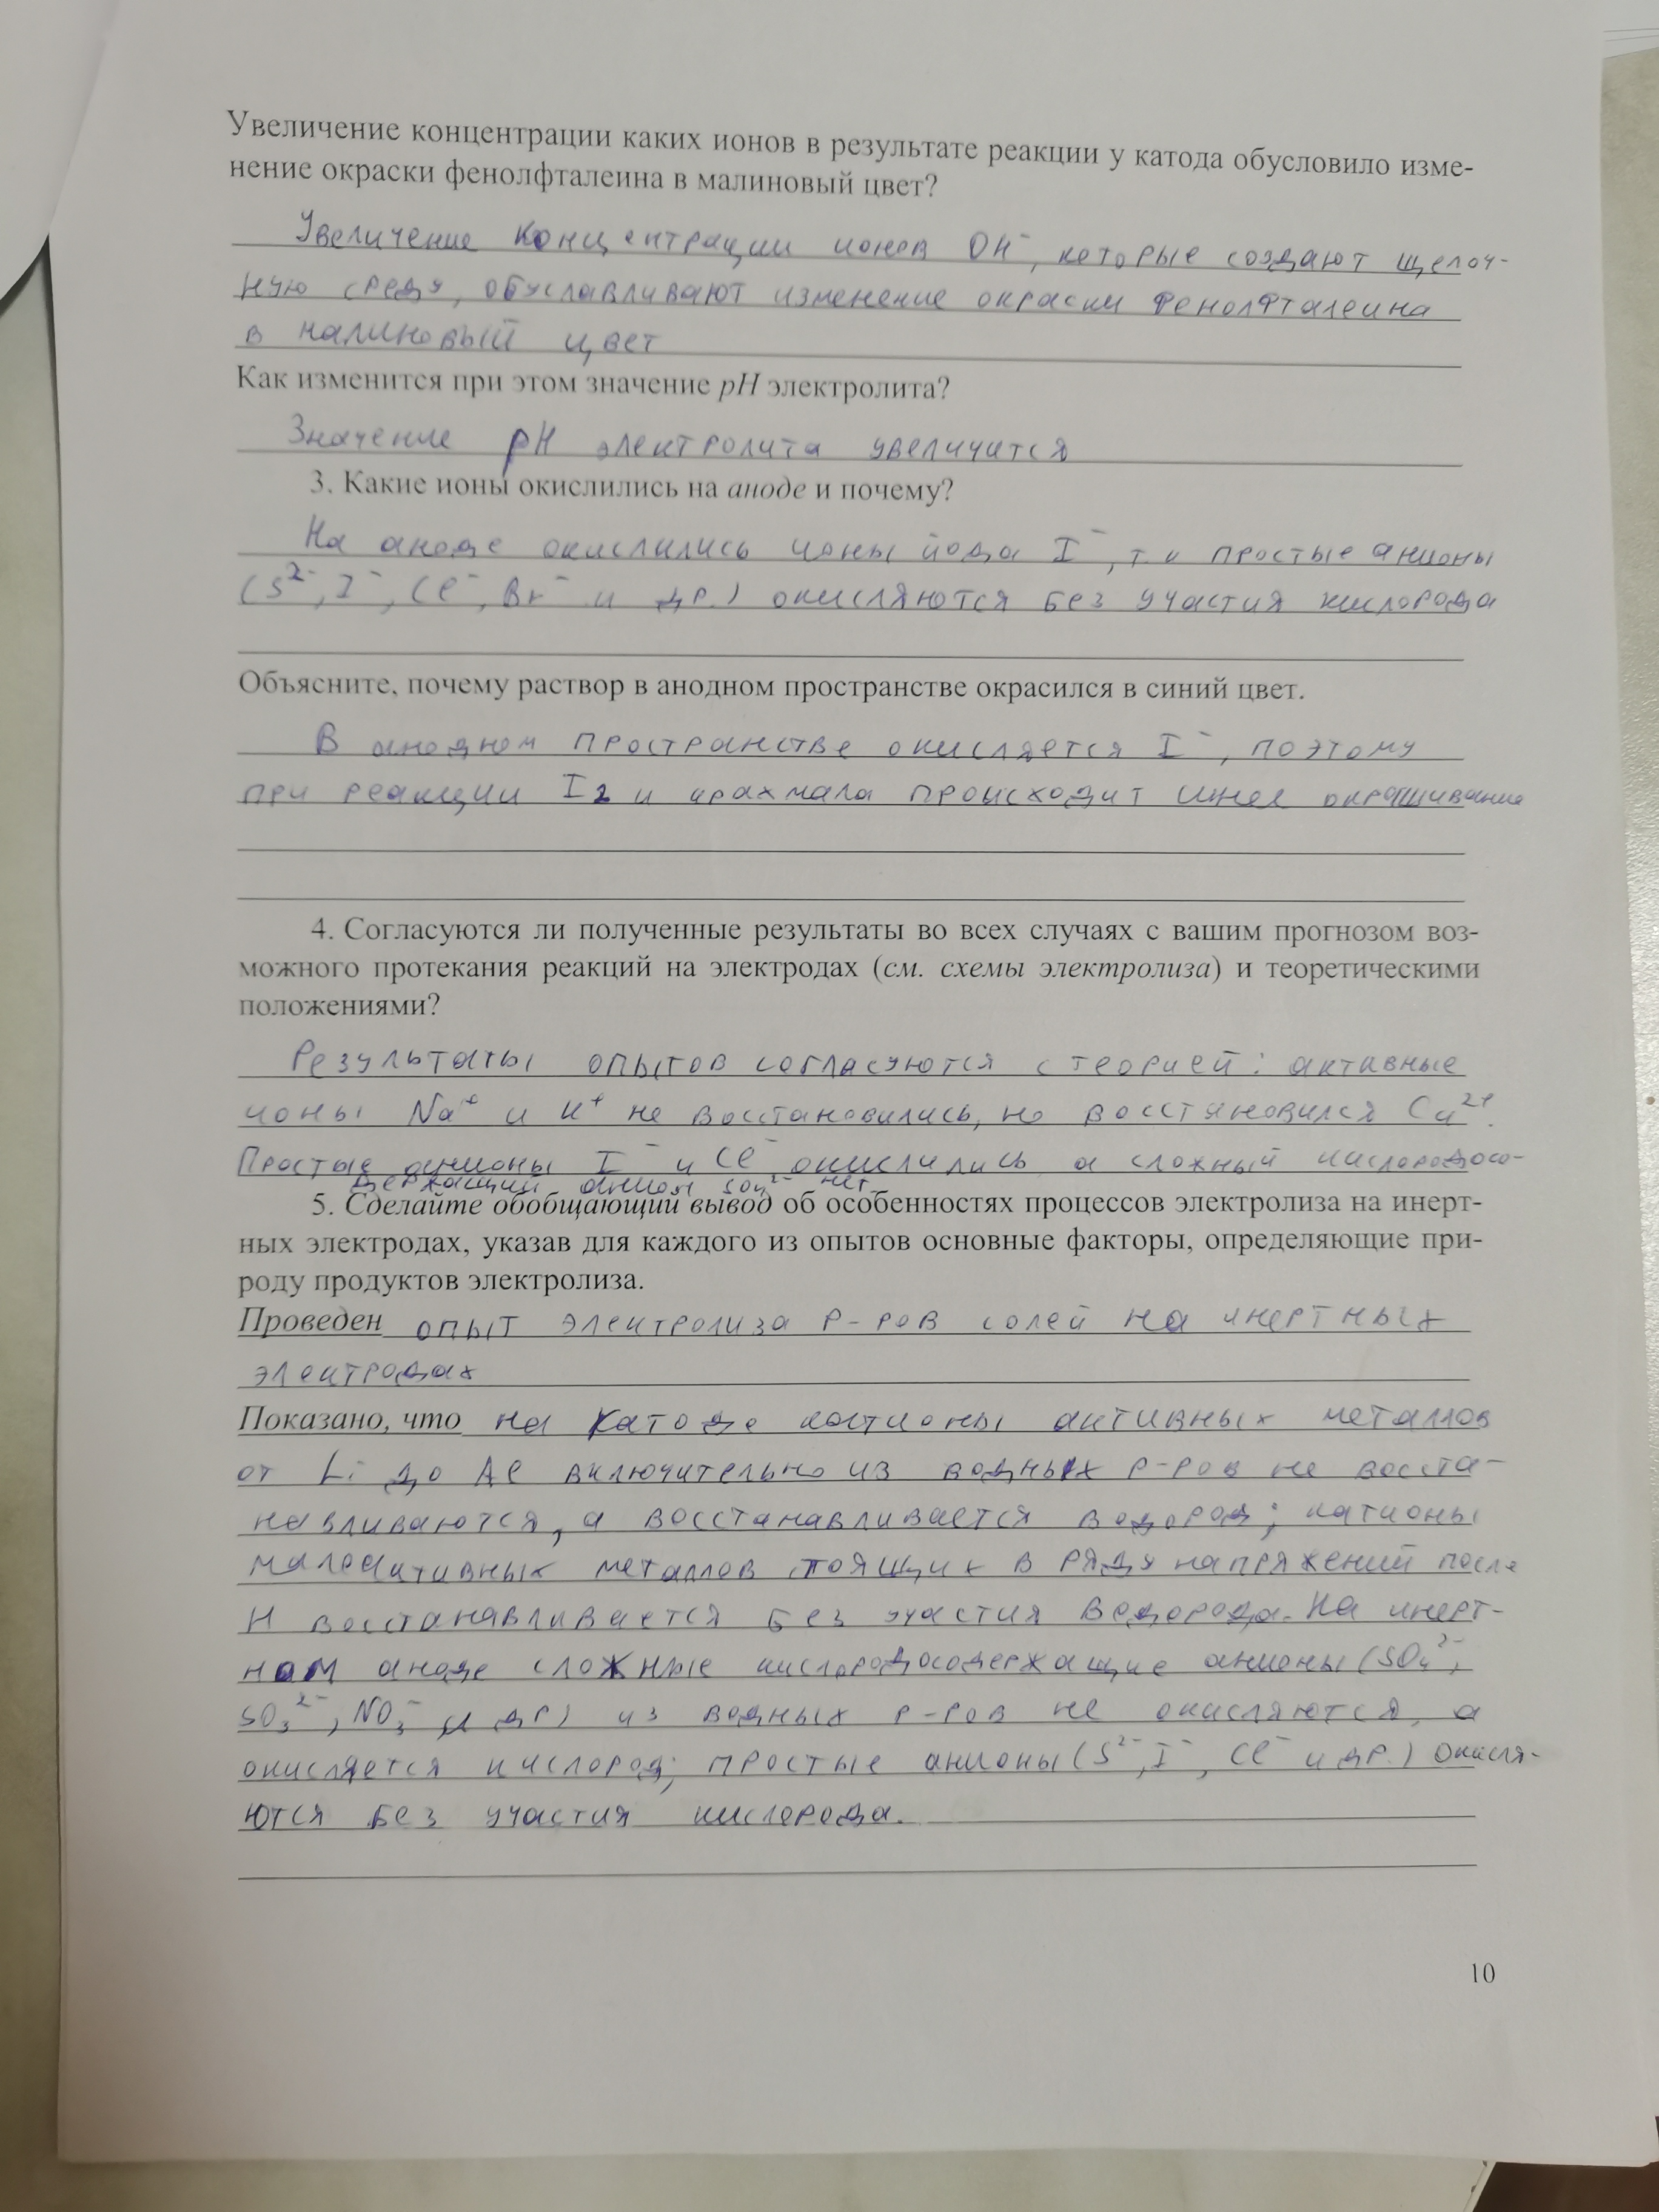 Увеличение концентрации каких ионов в результате реакции у катода обусловило изме-
нение окраски фенолфталеина в малиновый цвет?
Увеличение концентрации ионов OH⁻, которые создают щелоч-
ную среду, обуславливают изменение окраски фенолфталеина
в малиновый цвет
Как изменится при этом значение pH электролита?
Значение pH электролита увеличится
3. Какие ионы окислились на аноде и почему?
На аноде окислились ионы йода I⁻, т к простые анионы
(S²⁻, I⁻, Cl⁻, Br⁻ и др.) окисляются без участия кислорода
Объясните, почему раствор в анодном пространстве окрасился в синий цвет.
В анодном пространстве окисляется I⁻, поэтому
при реакции I₂ и крахмала происходит синее окрашивание
4. Согласуются ли полученные результаты во всех случаях с вашим прогнозом воз-
можного протекания реакций на электродах (см. схемы электролиза) и теоретическими
положениями?
Результаты опытов согласуются с теорией: активные
ионы Na⁺ и K⁺ не восстановились, но восстановился Cu²⁺.
Простые анионы I⁻ и Cl⁻ окислились а сложный кислородосо-
держащий анион SO₄²⁻ нет
5. Сделайте обобщающий вывод об особенностях процессов электролиза на инерт-
ных электродах, указав для каждого из опытов основные факторы, определяющие при-
роду продуктов электролиза.
Проведен опыт электролиза р-ров солей на инертных
электродах
Показано, что на катоде катионы активных металлов
от Li до Al включительно из водных р-ров не восста-
навливаются, а восстанавливается водород; катионы
малоактивных металлов стоящих в ряду напряжений после
H восстанавливается без участия водорода. На инерт-
ном аноде сложные кислородосодержащие анионы (SO₄²⁻,
SO₃²⁻, NO₃⁻ и др) из водных р-ров не окисляются, а
окисляется кислород; простые анионы (S²⁻, I⁻, Cl⁻ и др.) окисля-
ются без участия кислорода.
10